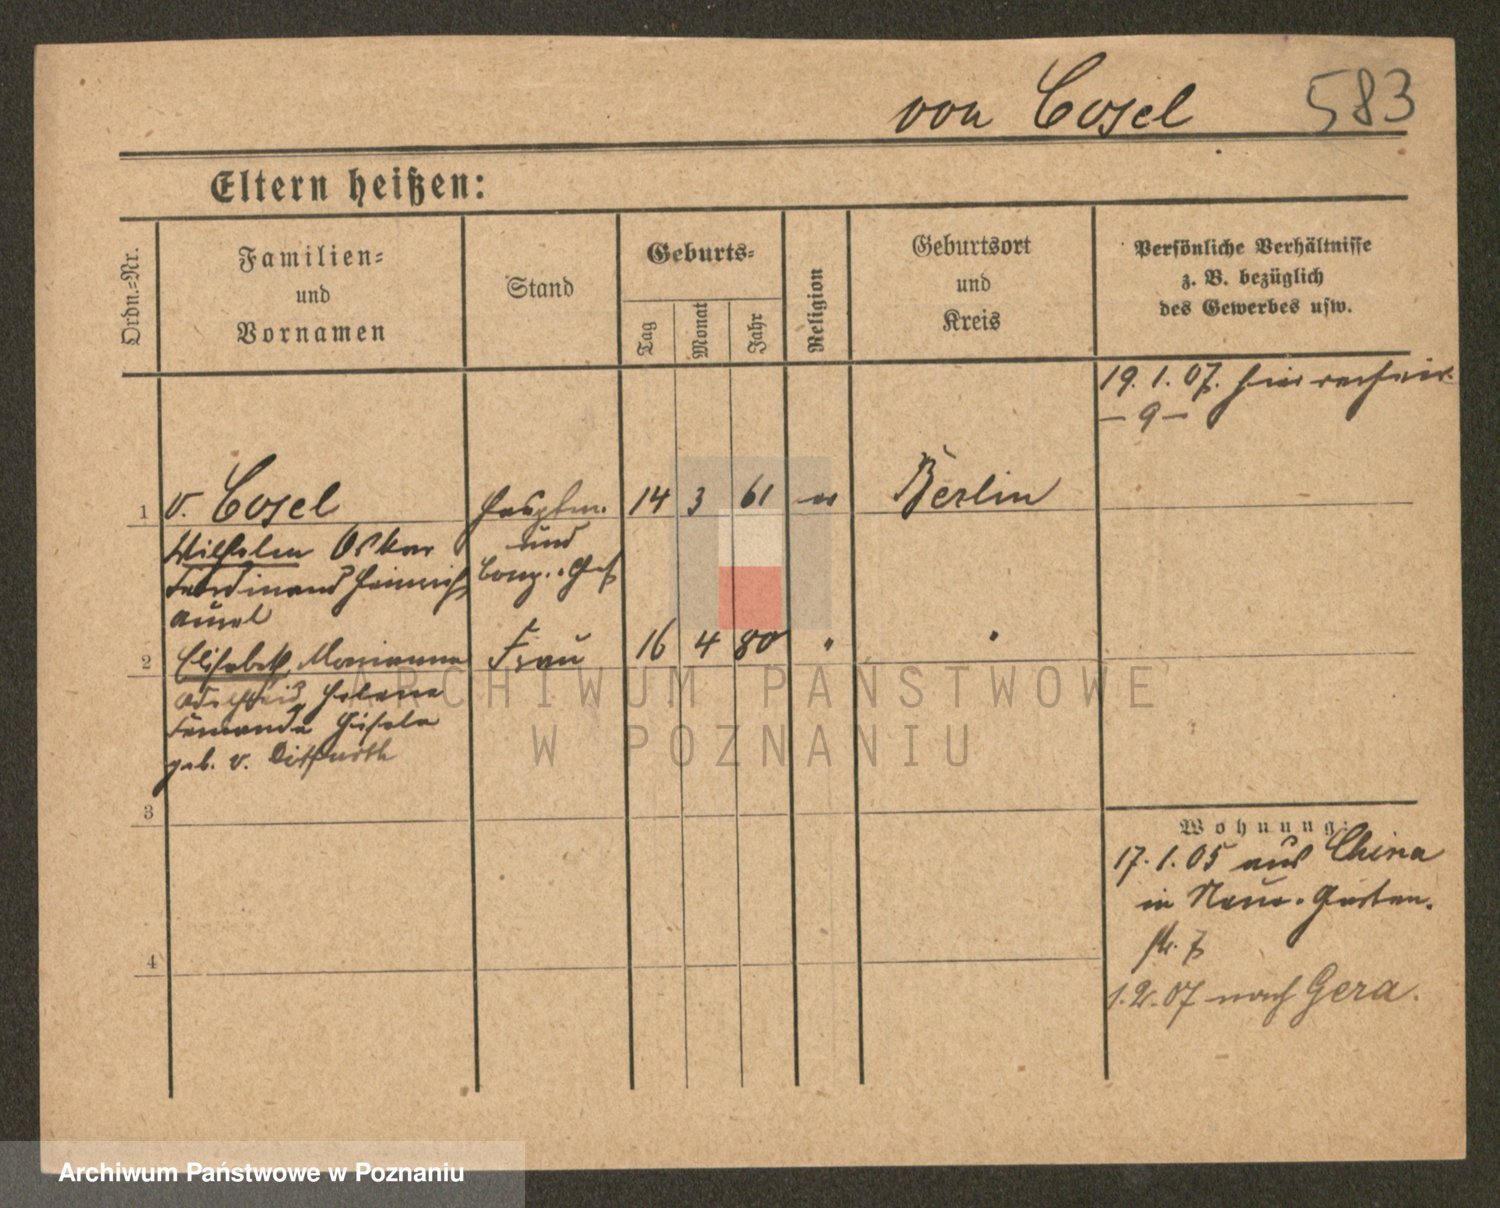 von Cosel 583
Eltern heißen:
Ordn.-Nr.
Familien-
und
Vornamen
Stand
Geburts-
Tag
Monat
Jahr
Religion
Geburtsort
und
Kreis
Persönliche Verhältnisse
z. B. bezüglich
des Gewerbes usw.
19. 1. 07.
- 9 -
1 v. Cosel Hauptm. 14 3 61 ev Berlin
und
Wilhelm Oskar
Ferdinand Heinrich Comp.-Chef
2 Elisabeth Marianne Frau 16 4 80 " "
Helene
Fernande Gisela
geb. v. Ditfurth
3
4
Wohnung:
17. 1. 05 aus China
in Neue-Garten-
str. 7
1. 2. 07 nach Gera.
ARCHIWUM PAŃSTWOWE
W POZNANIU
Archiwum Państwowe w Poznaniu